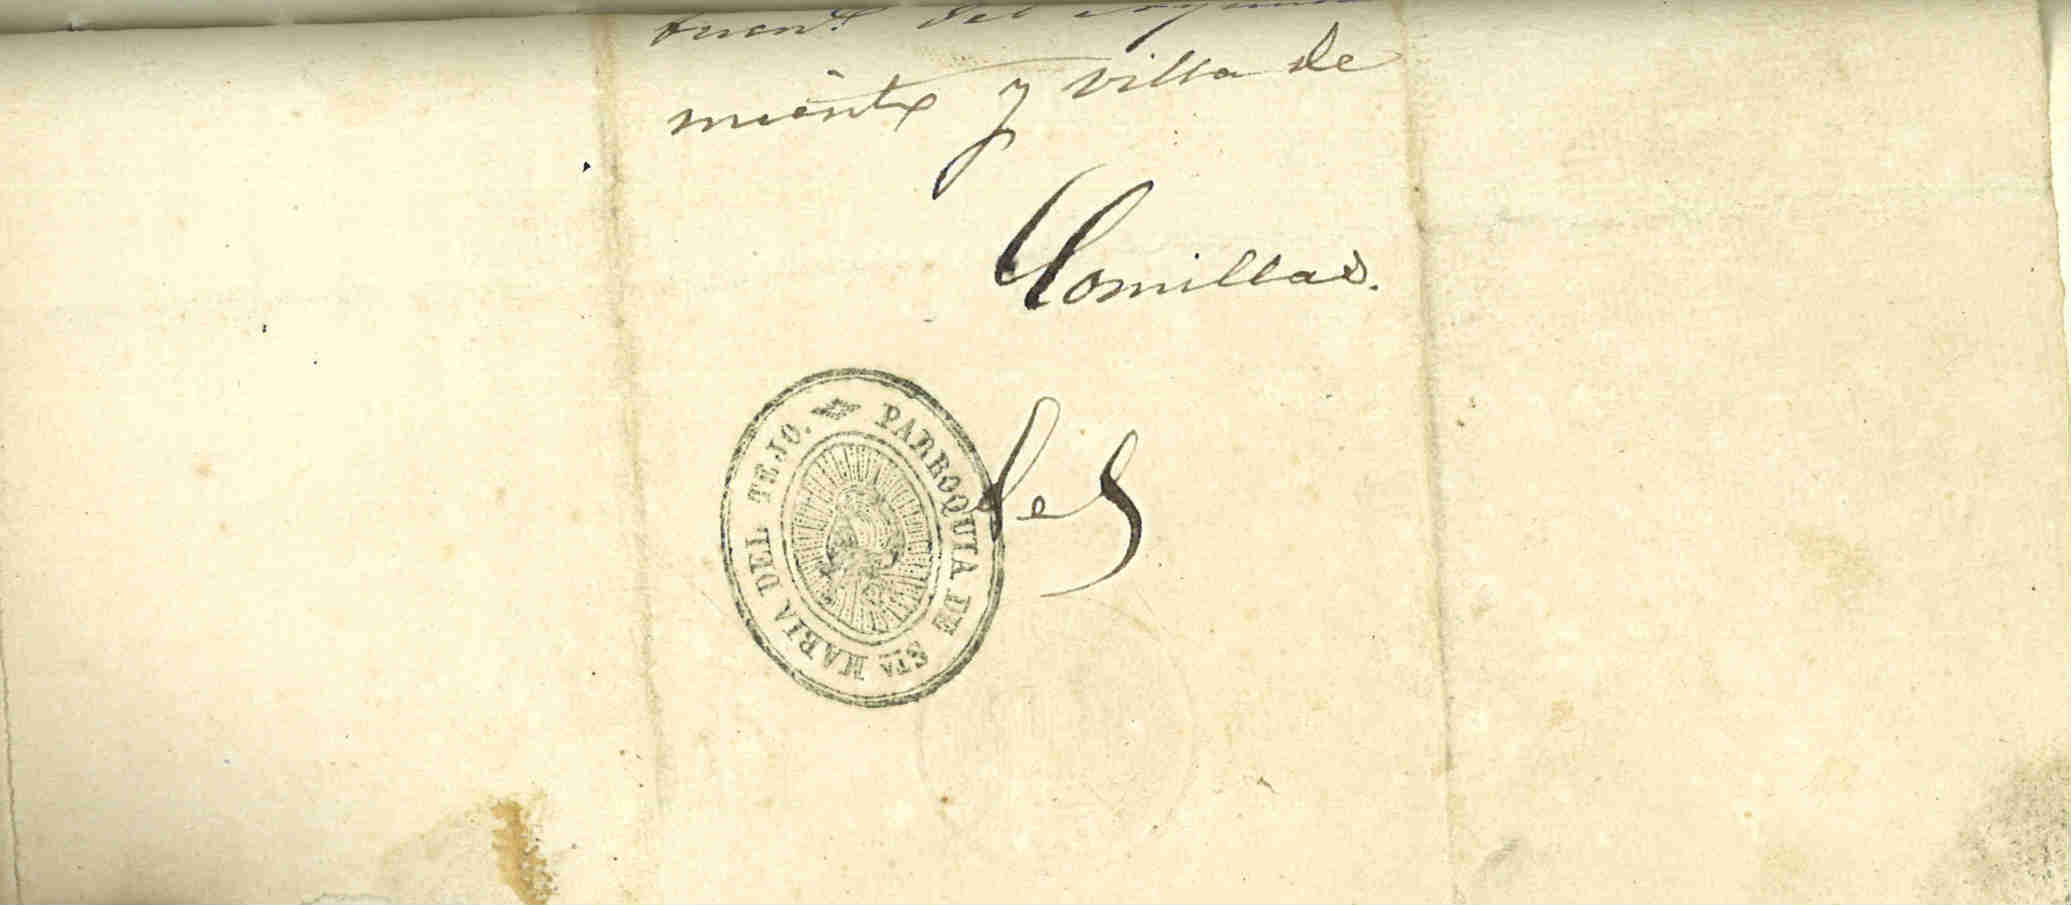 del
miento y villa de
Comillas.
PARROQUIA DE STA MARIA DEL TEJO.